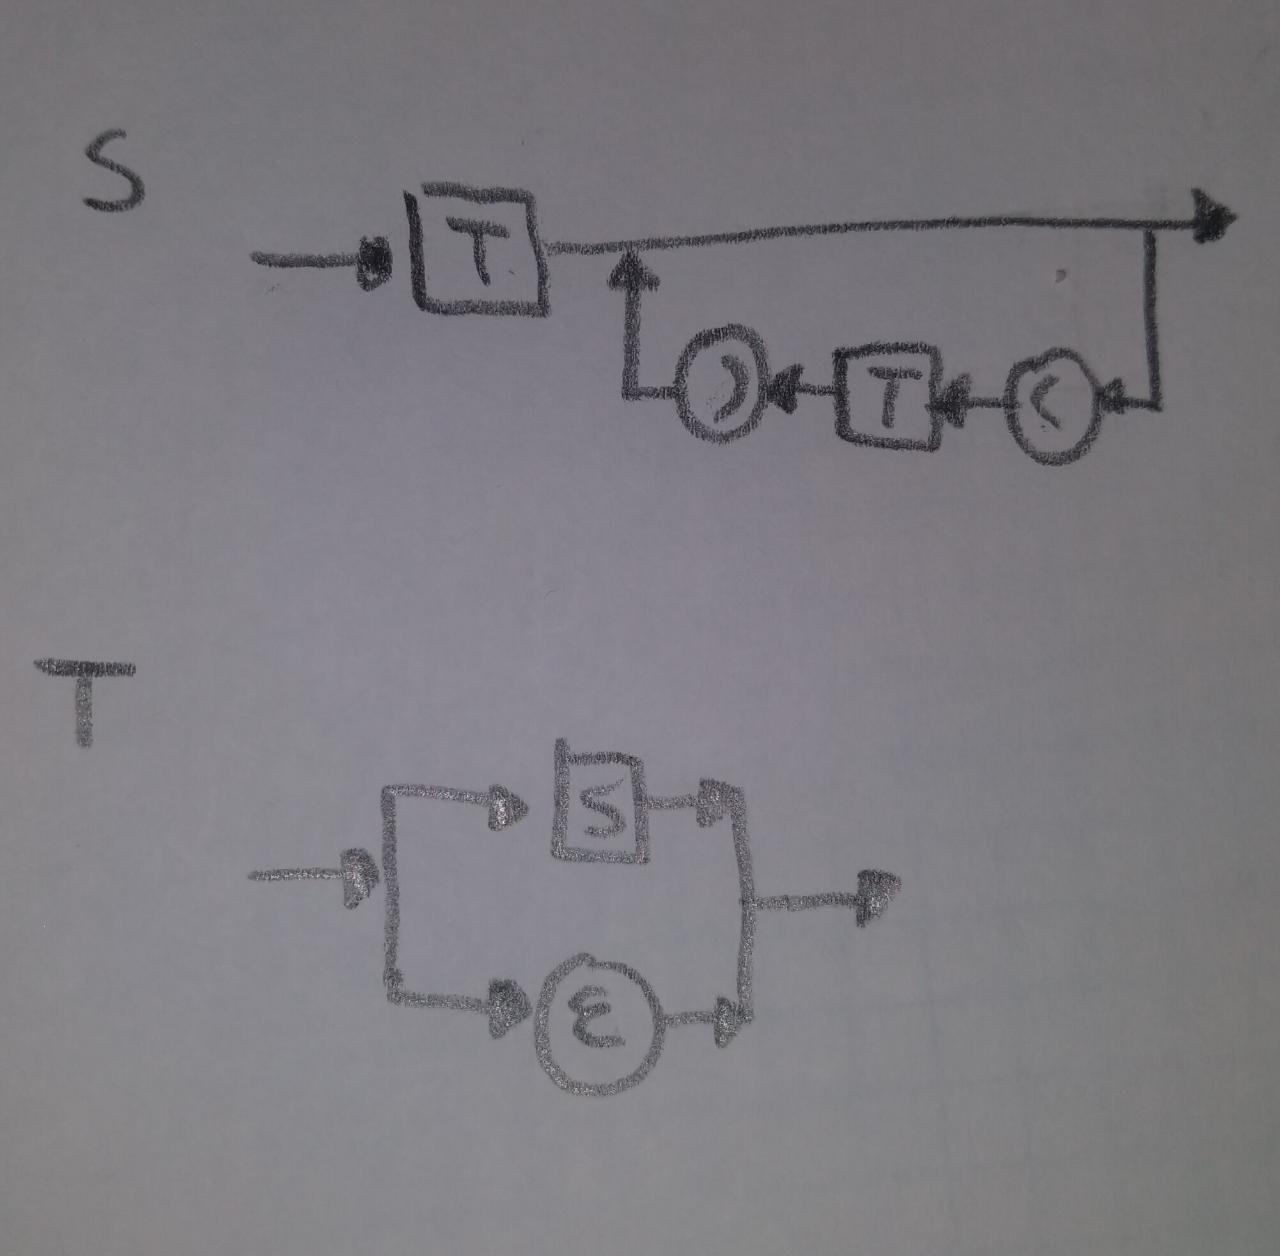 S
T
) T (
T
S
ε